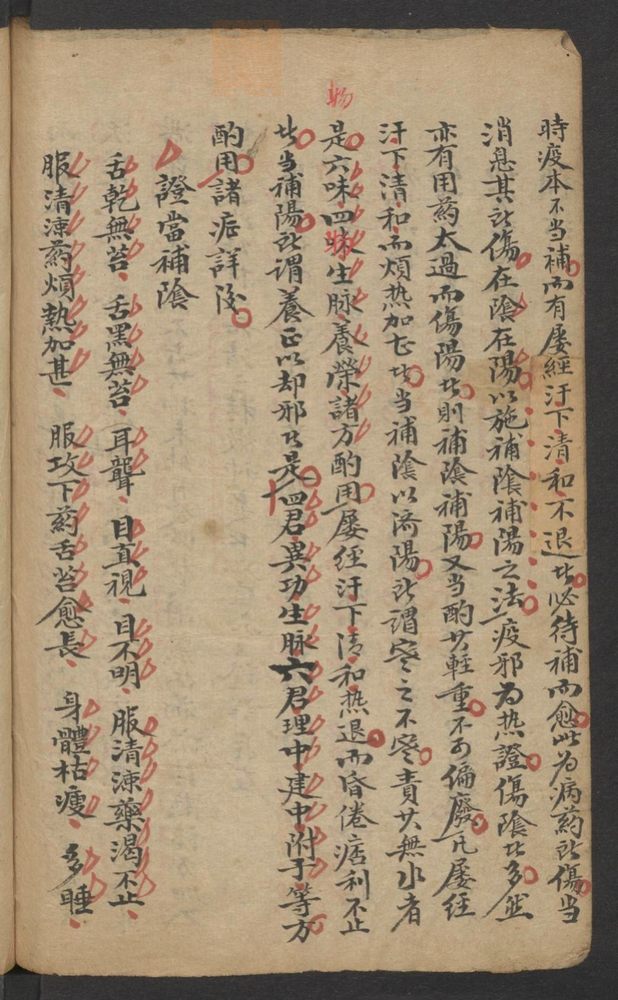 物
時疫本不当補而有屡經汗下清和不退㐌必待補而愈此为病药所傷当
消息其所傷在陰在陽以施補陰補陽之法疫邪为热證傷陰㐌多然
亦有用药太過而傷陽㐌則補陰補陽又当酌其軽重不可偏廢凡屡经
汗下清和而煩热加甚㐌当補陰以济陽所謂寒之不寒責其無水者
是六味四物生脉養榮諸方酌用屡經汗下清和热退而昏倦痞利不止
㐌当補陽所謂養正以却邪㐌是四君異功生脉六君理中建中附子等方
酌用諸症詳後
證當補陰
舌乾無苔、舌黑無苔、耳聾、目直視、目不明、服清凉藥渴不止、
服清凉药煩熱加甚、服攻下药舌苔愈長、身體枯瘦、多睡、